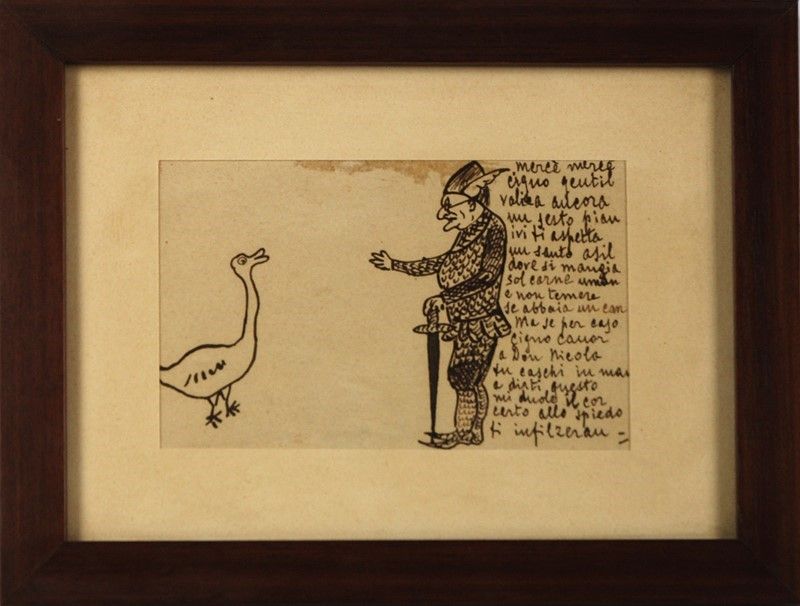 mercè mercè
cigno gentil
valica ancora
un sesto pian
ivi ti aspetta
un santo asil
dove si mangia
sol carne uman
e non temere
se abbaia un can
Ma se per caso
cigno canor
a Don Nicola
tu caschi in man
a dirti questo
mi duole il cor
certo allo spiedo
ti infilzeran =